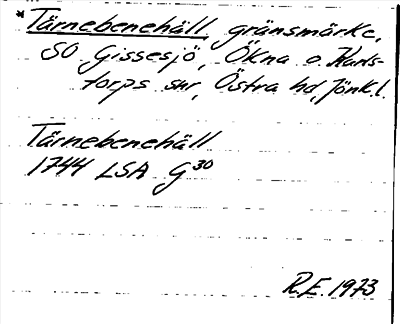 *Tärnebenehäll, gränsmärke,
SO Gissesjö, Ökna o. Karls-
torps snr, Östra hd, Jönk.l.
Tärnebenehäll
1744 LSA G30
R.E. 1973